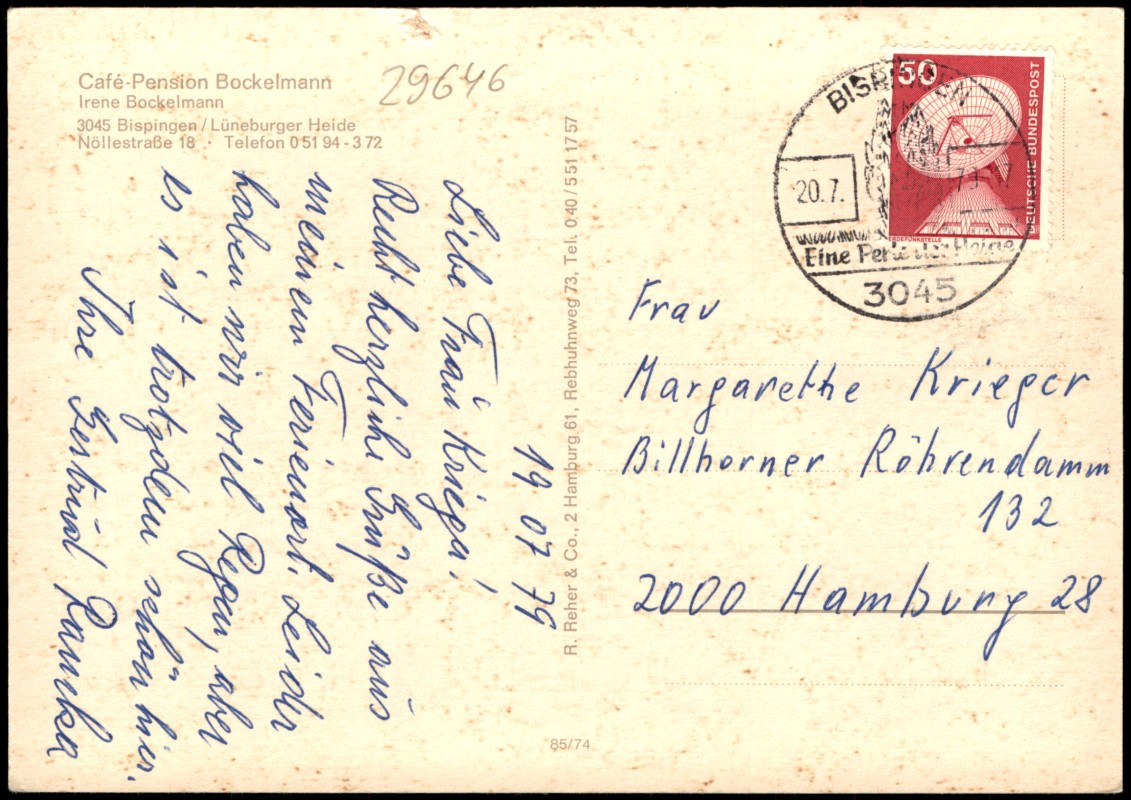 Café-Pension Bockelmann
Irene Bockelmann
3045 Bispingen / Lüneburger Heide
Nöllestraße 18 · Telefon 0 51 94 - 3 72
29646
19 07 79
Liebe Frau Krieger!
Recht herzliche Grüße aus
meinem Ferienort. Leider
haben wir viel Regen, aber
es ist trotzdem schön hier.
Ihre Gertrud
R. Reher & Co., 2 Hamburg 61, Rebhuhnweg 73, Tel. 040 / 551 17 57
85/74
50
DEUTSCHE BUNDESPOST
ERDEFUNKSTELLE
BISPINGEN
20.7.
Eine Perle der Heide
3045
Frau
Margarethe Krieger
Billhorner Röhrendamm
132
2000 Hamburg 28